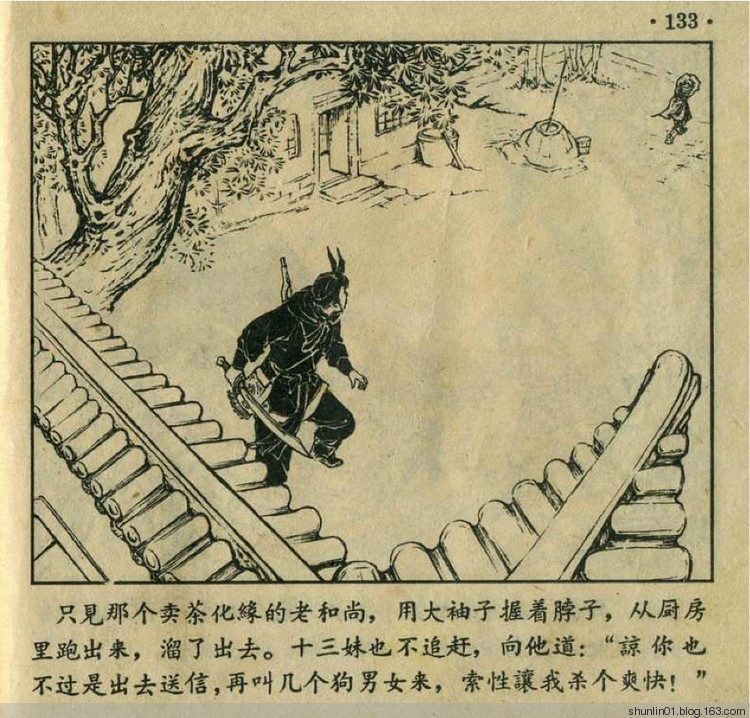 ·133·
只見那个卖茶化緣的老和尚，用大袖子握着脖子，从厨房
里跑出来，溜了出去。十三妹也不追赶，向他道：“諒你也
不过是出去送信，再叫几个狗男女来，索性讓我杀个爽快！”
shunlin01.blog.163.com